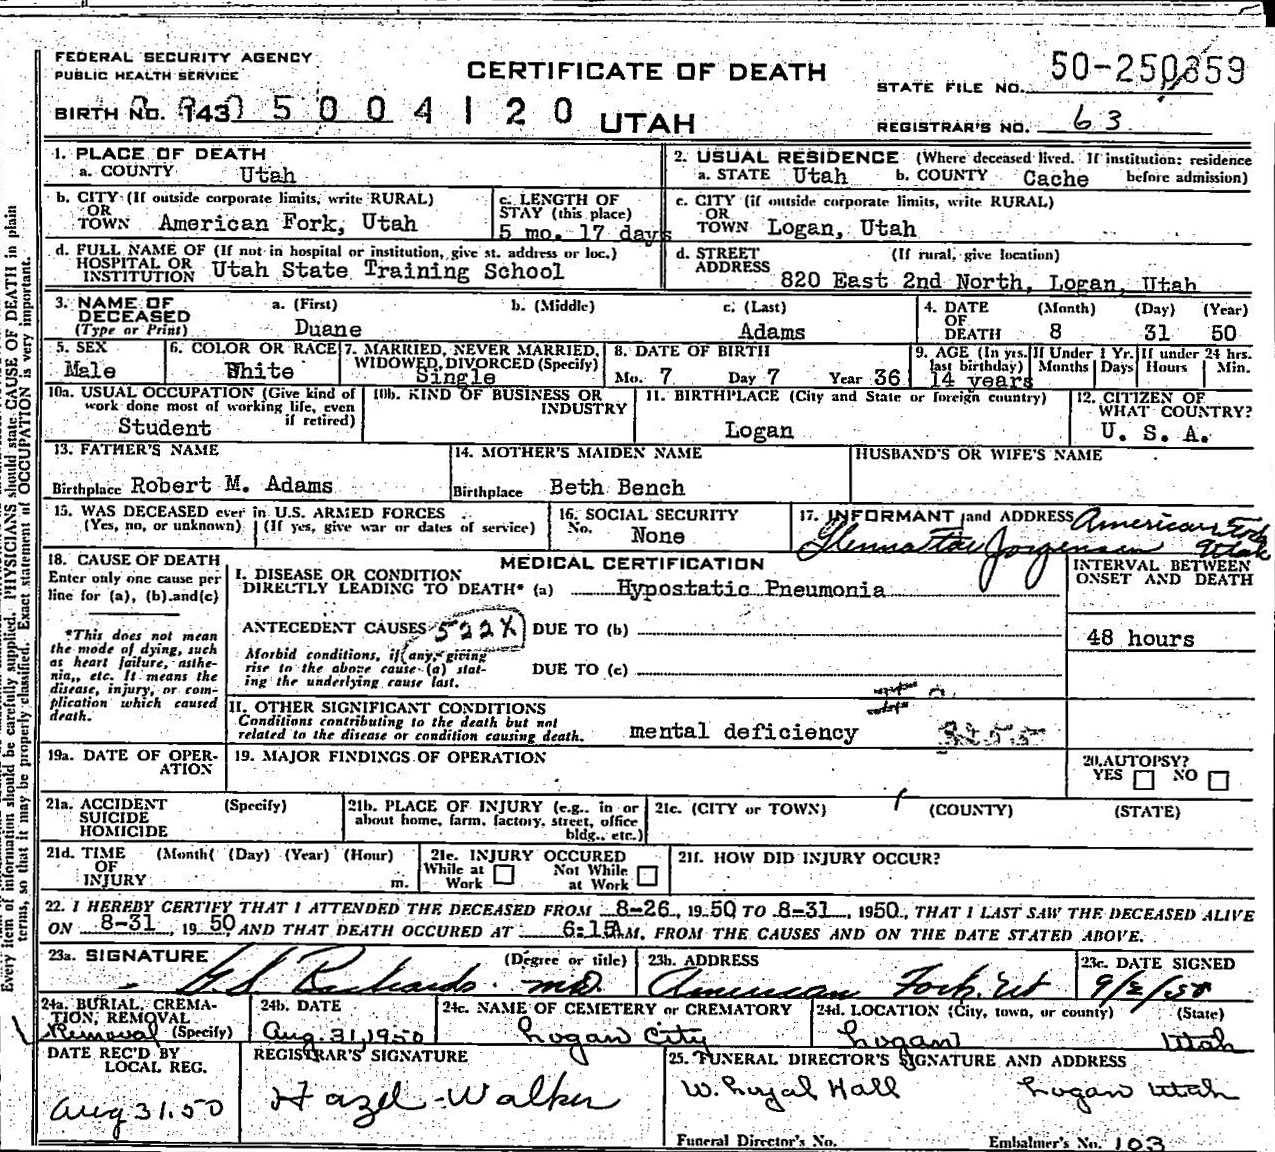 FEDERAL SECURITY AGENCY
PUBLIC HEALTH SERVICE
CERTIFICATE OF DEATH
STATE FILE NO. 50-250859
BIRTH NO. 143 05004120
UTAH
REGISTRAR'S NO. 63
1. PLACE OF DEATH
a. COUNTY Utah
2. USUAL RESIDENCE (Where deceased lived. If institution: residence before admission)
a. STATE Utah b. COUNTY Cache
b. CITY (If outside corporate limits, write RURAL)
OR
TOWN American Fork, Utah
c. LENGTH OF STAY (this place)
5 mo. 17 days
c. CITY (if outside corporate limits, write RURAL)
OR
TOWN Logan, Utah
d. FULL NAME OF (If not in hospital or institution, give st. address or loc.)
HOSPITAL OR
INSTITUTION Utah State Training School
d. STREET (If rural, give location)
ADDRESS 820 East 2nd North, Logan, Utah
3. NAME OF DECEASED (Type or Print)
a. (First) b. (Middle) c. (Last)
Duane Adams
4. DATE OF DEATH (Month) (Day) (Year)
8 31 50
5. SEX
Male
6. COLOR OR RACE
White
7. MARRIED, NEVER MARRIED, WIDOWED, DIVORCED (Specify)
Single
8. DATE OF BIRTH
Mo. 7 Day 7 Year 36
9. AGE (In yrs. last birthday)
14 years
If Under 1 Yr. Months Days
If under 24 hrs. Hours Min.
10a. USUAL OCCUPATION (Give kind of work done most of working life, even if retired)
Student
10b. KIND OF BUSINESS OR INDUSTRY
11. BIRTHPLACE (City and State or foreign country)
Logan
12. CITIZEN OF WHAT COUNTRY?
U. S. A.
13. FATHER'S NAME
Birthplace Robert M. Adams
14. MOTHER'S MAIDEN NAME
Birthplace Beth Bench
HUSBAND'S OR WIFE'S NAME
15. WAS DECEASED ever in U.S. ARMED FORCES
(Yes, no, or unknown) (If yes, give war or dates of service)
16. SOCIAL SECURITY
No. None
17. INFORMANT and ADDRESS American Fork Utah
Jorgensen
18. CAUSE OF DEATH
Enter only one cause per line for (a), (b) and (c)
*This does not mean the mode of dying, such as heart failure, asthenia, etc. It means the disease, injury, or complication which caused death.
MEDICAL CERTIFICATION
INTERVAL BETWEEN ONSET AND DEATH
I. DISEASE OR CONDITION
DIRECTLY LEADING TO DEATH* (a) Hypostatic Pneumonia
ANTECEDENT CAUSES 522X DUE TO (b)
48 hours
Morbid conditions, if any, giving rise to the above cause (a) stating the underlying cause last.
DUE TO (c)
II. OTHER SIGNIFICANT CONDITIONS
Conditions contributing to the death but not related to the disease or condition causing death.
mental deficiency 3255
19a. DATE OF OPERATION
19. MAJOR FINDINGS OF OPERATION
20. AUTOPSY?
YES NO
21a. ACCIDENT (Specify)
SUICIDE
HOMICIDE
21b. PLACE OF INJURY (e.g., in or about home, farm, factory, street, office bldg., etc.)
21c. (CITY or TOWN) (COUNTY) (STATE)
21d. TIME (Month( (Day) (Year) (Hour)
OF
INJURY m.
21e. INJURY OCCURED
While at Work Not While at Work
21f. HOW DID INJURY OCCUR?
22. I HEREBY CERTIFY THAT I ATTENDED THE DECEASED FROM 8-26, 1950 TO 8-31, 1950, THAT I LAST SAW THE DECEASED ALIVE
ON 8-31, 1950, AND THAT DEATH OCCURED AT 6:15AM, FROM THE CAUSES AND ON THE DATE STATED ABOVE.
23a. SIGNATURE (Degree or title)
G.S. Richards. M.D.
23b. ADDRESS
American Fork. Ut
23c. DATE SIGNED
24a. BURIAL, CREMATION, REMOVAL
Removal (Specify)
24b. DATE
Aug. 31, 1950
24c. NAME OF CEMETERY or CREMATORY
Logan City
24d. LOCATION (City, town, or county) (State)
Logan Utah
DATE REC'D BY LOCAL REG.
Aug 31. 50
REGISTRAR'S SIGNATURE
Hazel Walker
25. FUNERAL DIRECTOR'S SIGNATURE AND ADDRESS
W. Loyal Hall Logan Utah
Funeral Director's No. Embalmer's No. 103
Every item of information should be carefully supplied. PHYSICIANS should state CAUSE OF DEATH in plain
terms, so that it may be properly classified. Exact statement of OCCUPATION is very important.